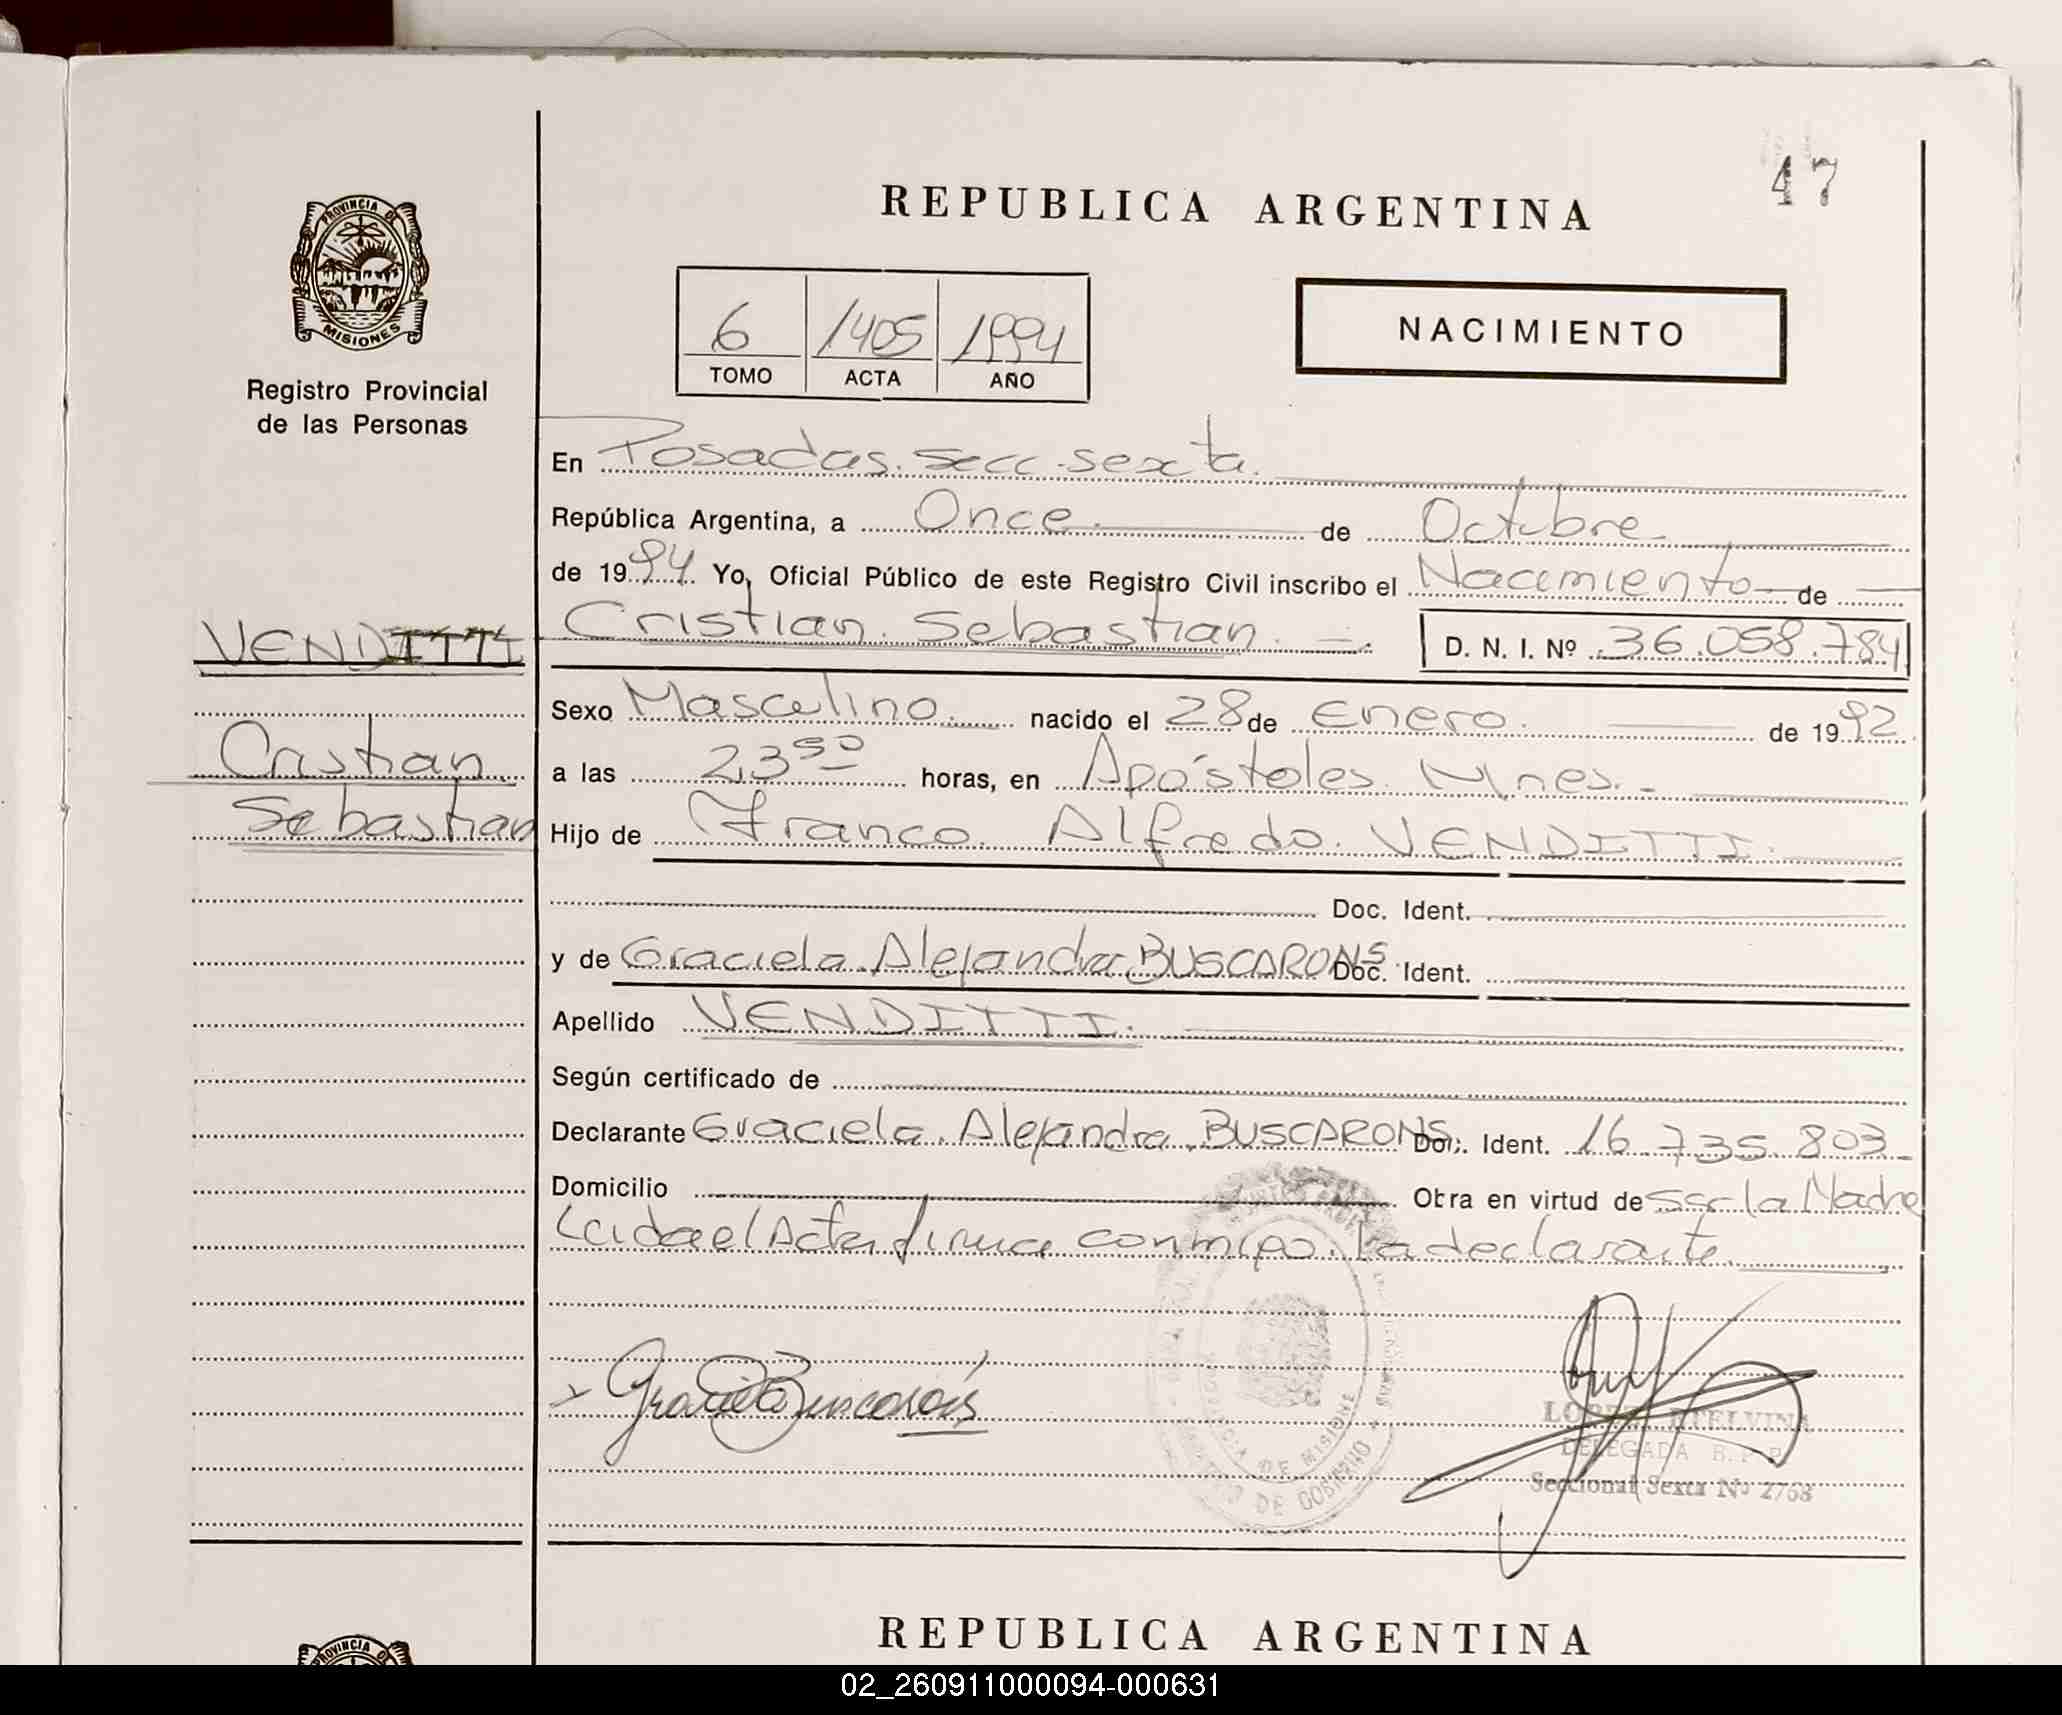 47
REPUBLICA ARGENTINA
PROVINCIA DE
MISIONES
Registro Provincial
de las Personas
6 1405 1994
TOMO ACTA AÑO
NACIMIENTO
En Posadas. Secc. sexta.
República Argentina, a Once. de Octubre
de 1994. Yo, Oficial Público de este Registro Civil inscribo el Nacimiento de
VENDITTI
Cristian. Sebastian. D. N. I. Nº 36.058.784
Sexo Masculino. nacido el 28 de Enero. de 1992
Cristian
a las 23 50 horas, en Apóstoles. Mnes.
Sebastian
Hijo de Franco. Alfredo. VENDITTI.
Doc. Ident.
y de Graciela. Alejandra. BUSCARONS Doc. Ident.
Apellido VENDITTI.
Según certificado de
Declarante Graciela. Alejandra. BUSCARONS. Doc. Ident. 16.735.803
Domicilio Obra en virtud de ser la Madre
Leida el Acta firma conmigo. la declarante
Graciela Buscarons
LOPEZ ETELVINA
DELEGADA R. P. P.
Seccional Sexta Nº 2768
DE MISIONE
DE GOBIERNO
REPUBLICA ARGENTINA
PROVINCIA DE
02_260911000094-000631